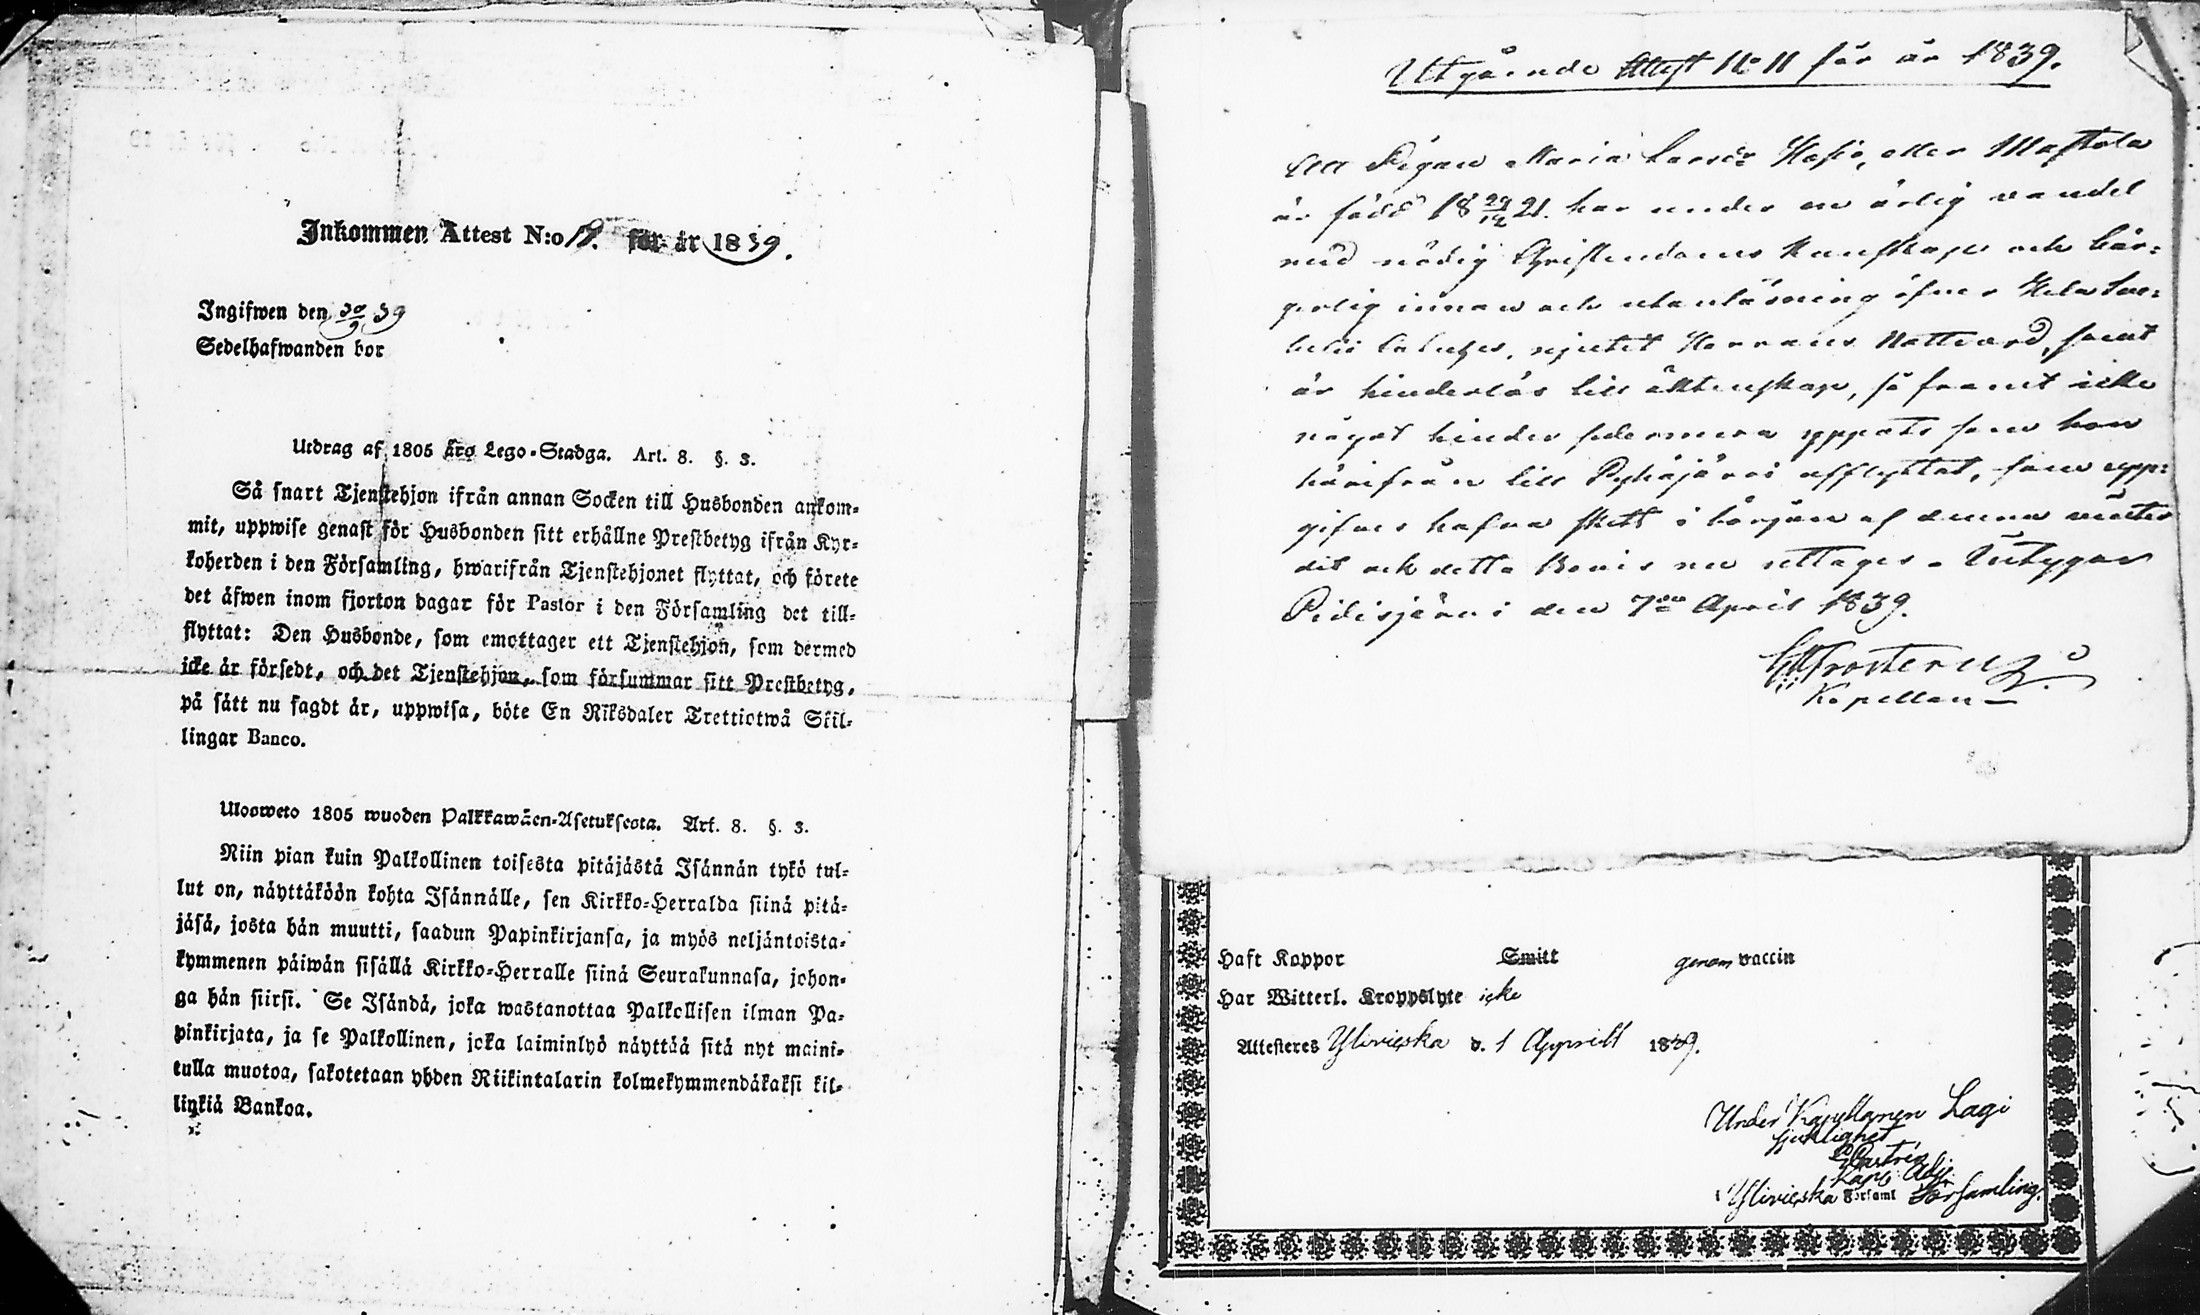 Inkommen Attest N:o 19. för år 1839.
Ingifwen den 30/9 39
Sedelhafwanden bor
Utdrag af 1805 års Lego-Stadga. Art. 8. §. 3.
Så snart Tjenstehjon ifrån annan Socken till Husbonden ankom-
mit, uppwise genast för Husbonden sitt erhållne Prestbetyg ifrån Kyr-
koherden i den Församling, hwarifrån Tjenstehjonet flyttat, och förete
det äfwen inom fjorton dagar för Pastor i den Församling det till-
flyttat: Den Husbonde, som emottager ett Tjenstehjon, som dermed
icke är försedt, och det Tjenstehjon, som försummar sitt Prestbetyg,
på sätt nu sagdt är, uppwisa, böte En Riksdaler Trettiotwå Skil-
lingar Banco.
Ulosweto 1805 wuoden Palkkawäen-Asetuksesta. Art. 8. §. 3.
Niin pian kuin Palkollinen toisesta pitäjästä Isännän tykö tul-
lut on, näyttäköön kohta Isännälle, sen Kirkko-Herralda siinä pitä-
jäsä, josta hän muutti, saadun Papinkirjansa, ja myös neljäntoista-
kymmenen päiwän sisällä Kirkko-Herralle siinä Seurakunnasa, johon-
ga hän siirsi. Se Isändä, joka wastanottaa Palkollisen ilman Pa-
pinkirjata, ja se Palkollinen, joka laiminlyö näyttää sitä nyt maini-
tulla muotoa, sakotetaan yhden Riikintalarin kolmekymmendäkaksi kil-
linkiä Bankoa.
Utgående Attest No 11 för år 1839.
Att Pigan Maria Larsdr Hasio, eller Mastola
är född 18 29/12 21. har under en ärlig vandel
med nödig Christendoms Kunskap och bär-
gerlig innan och utanläsning öfver Hela Sve-
belii Cateches, njutit Herrans Nattvard, samt
är hinderlös till äktenskap, så framt icke
något hinder sedermera yppats sen hon
härifrån till Pyhäjärvi afflyttat, som upp-
gifves hafva skett i början af denna vinter
dit och detta Bevis nu uttages. Intygar
Pidisjärvi den 7de April 1839.
Frosterus
Kapellan
Haft Koppor Smitt genom vaccin
Har Witterl. Kroppslyte icke
Attesteres Ylivieska d. 1 Appvill 1839.
Under Kapellanen Lagi
sjuklighet
Kap. Adj.
Ylivieska Församl Församling.